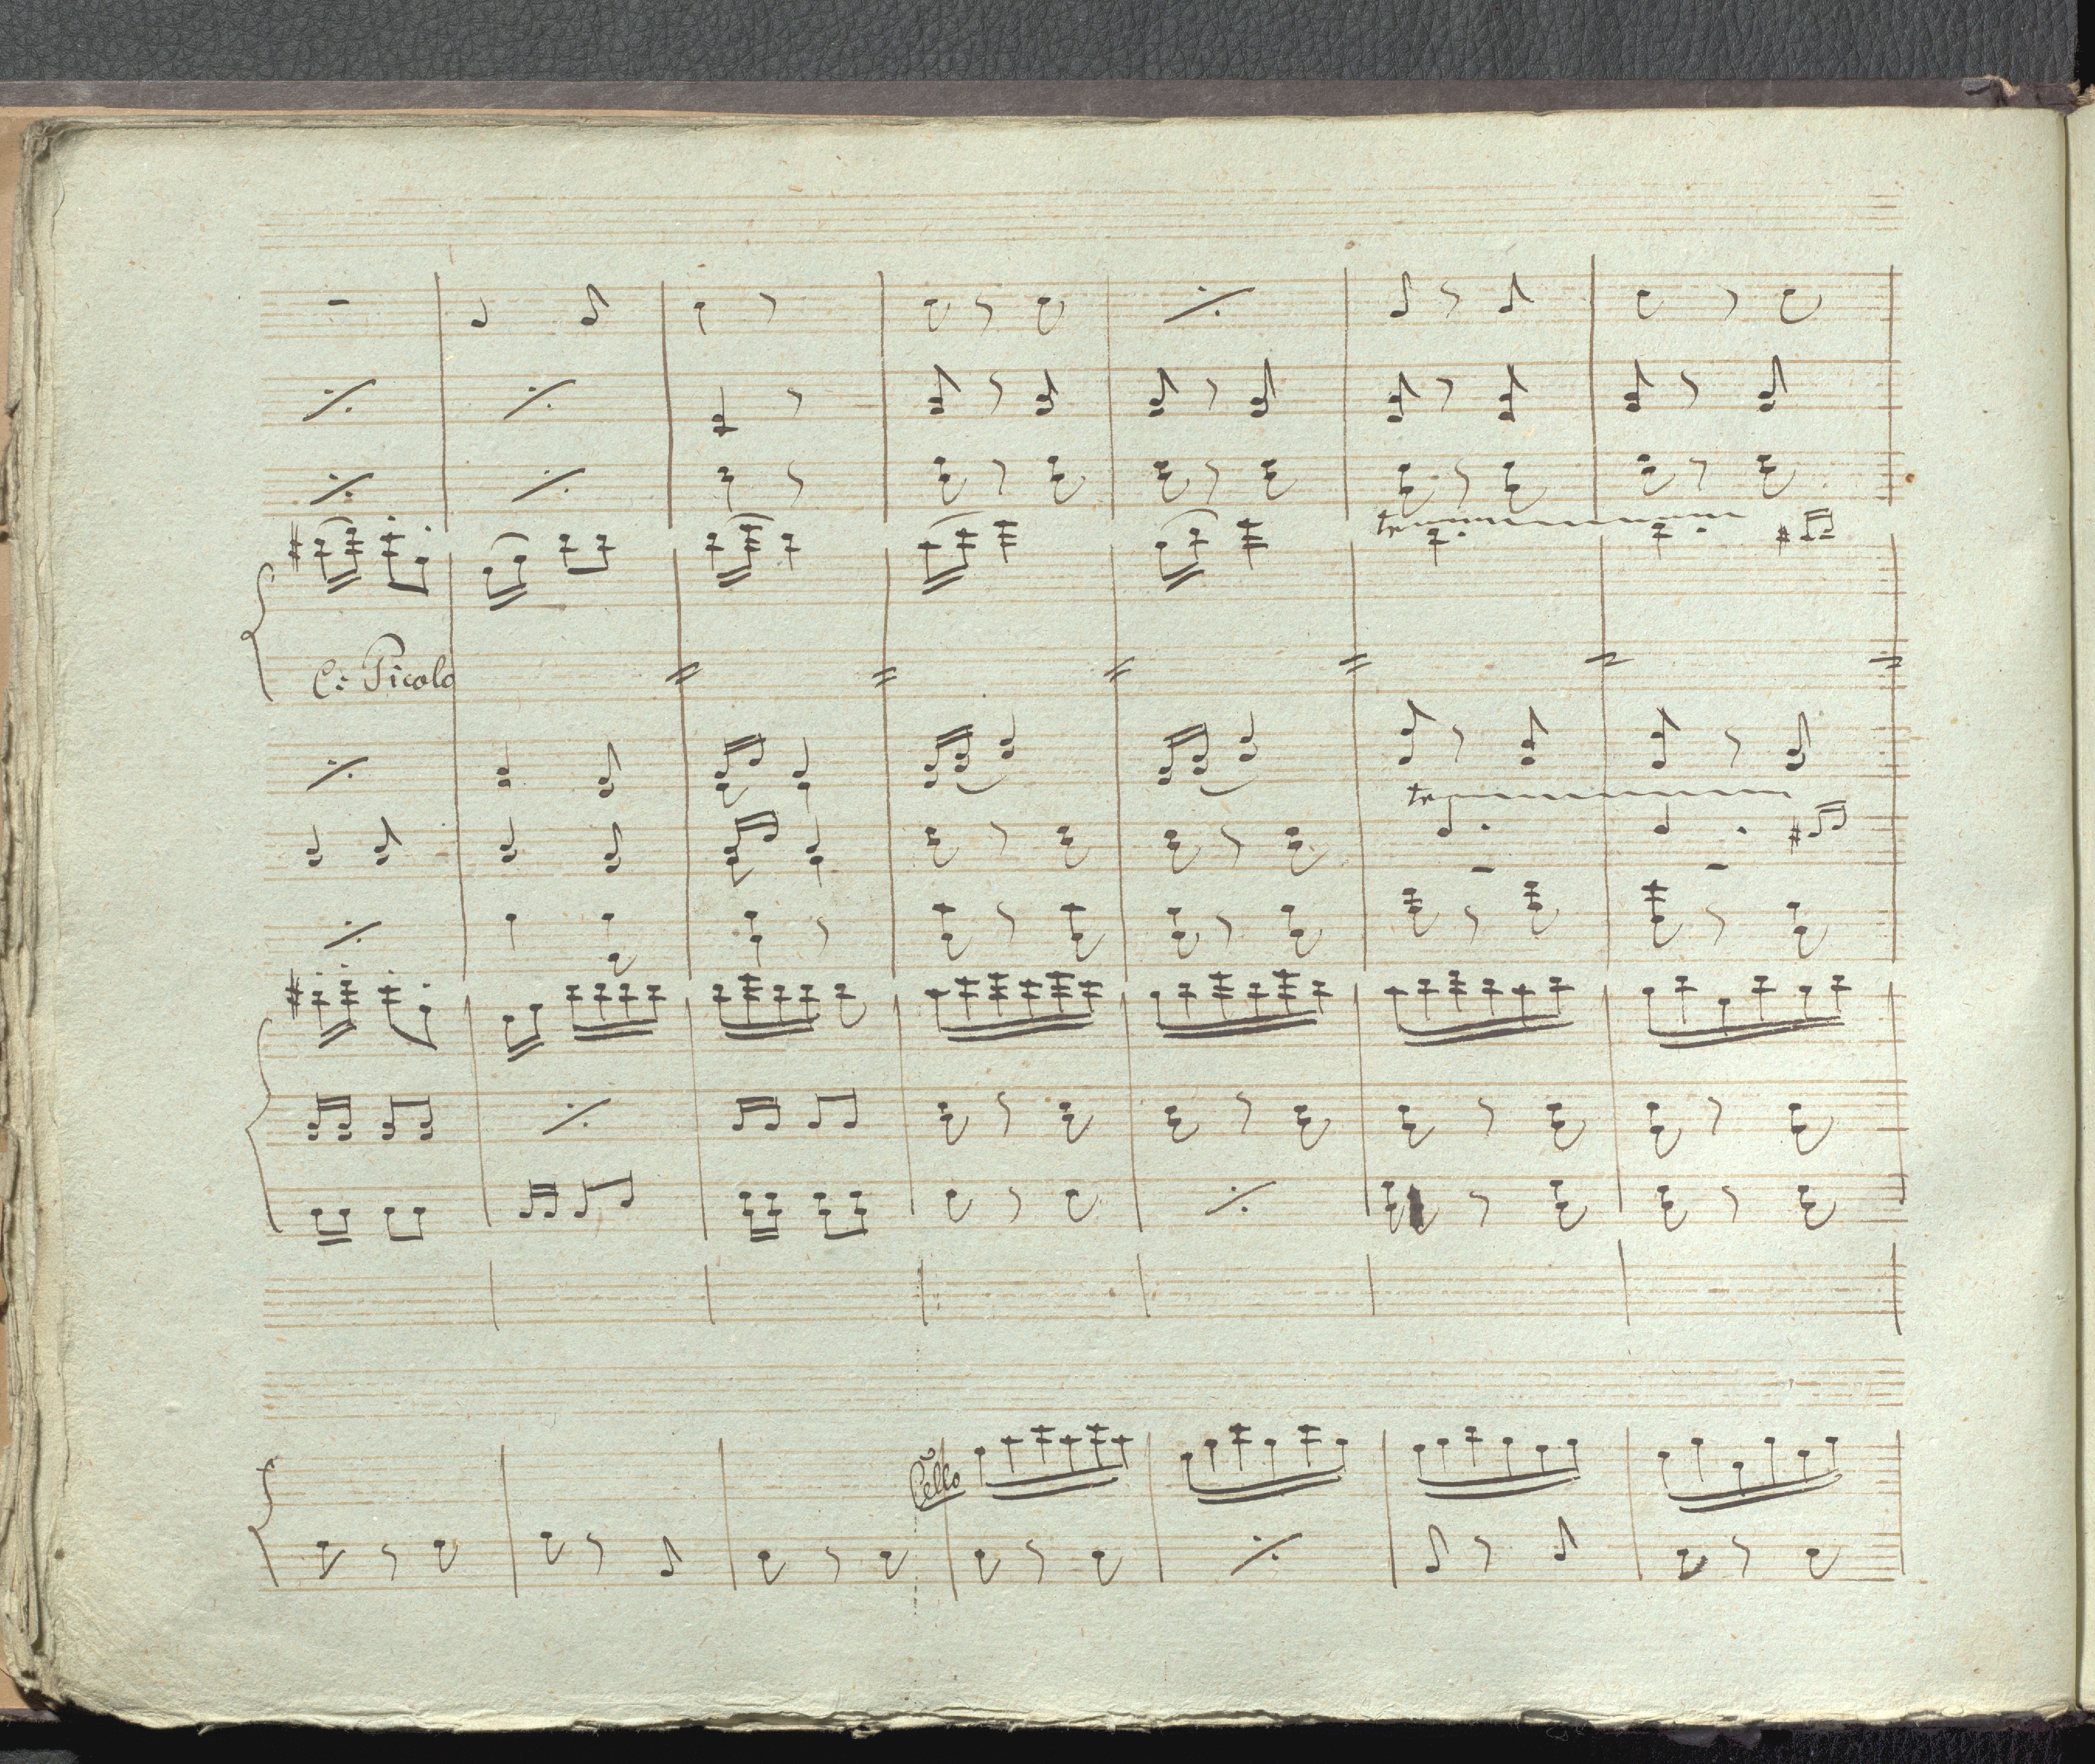 C: Picolo
tr
tr
Cello